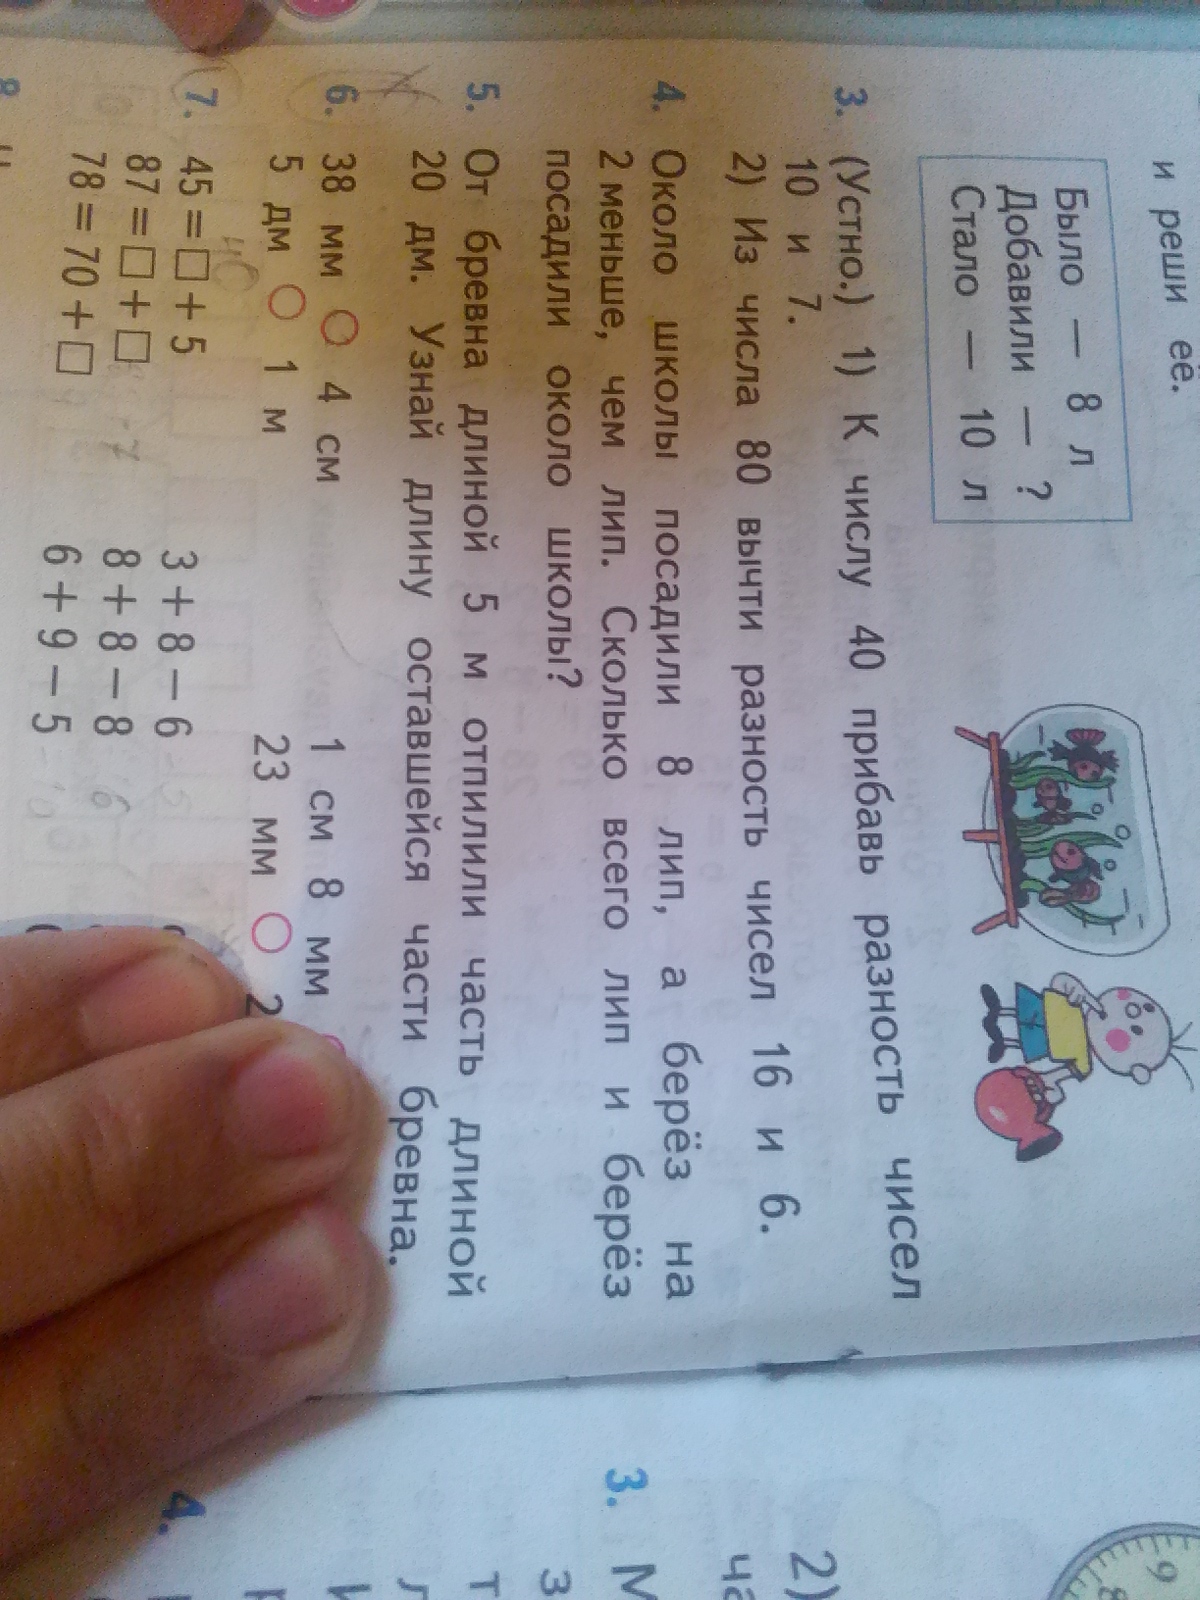 и реши её.
Было — 8 л
Добавили — ?
Стало — 10 л
3. (Устно.) 1) К числу 40 прибавь разность чисел
10 и 7.
2) Из числа 80 вычти разность чисел 16 и 6.
4. Около школы посадили 8 лип, а берёз на
2 меньше, чем лип. Сколько всего лип и берёз
посадили около школы?
5. От бревна длиной 5 м отпилили часть длиной
20 дм. Узнай длину оставшейся части бревна.
6. 38 мм ○ 4 см 1 см 8 мм
5 дм ○ 1 м 23 мм ○ 2
7. 45 = □ + 5 3 + 8 − 6
87 = □ + □ 8 + 8 − 8
78 = 70 + □ 6 + 9 − 5
8
2)
3. М
4.
9
8